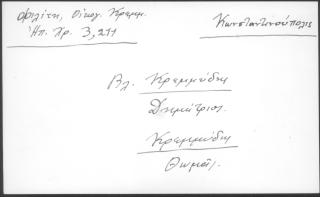 Φιλίτη, Οἰκογ. Κρεμμ.
Ἠπ. Χρ. 3, 211
Κωνσταντινούπολις
Βλ. Κρεμμύδης
Δημήτριος.
Κρεμμύδης
Θωμᾶς.